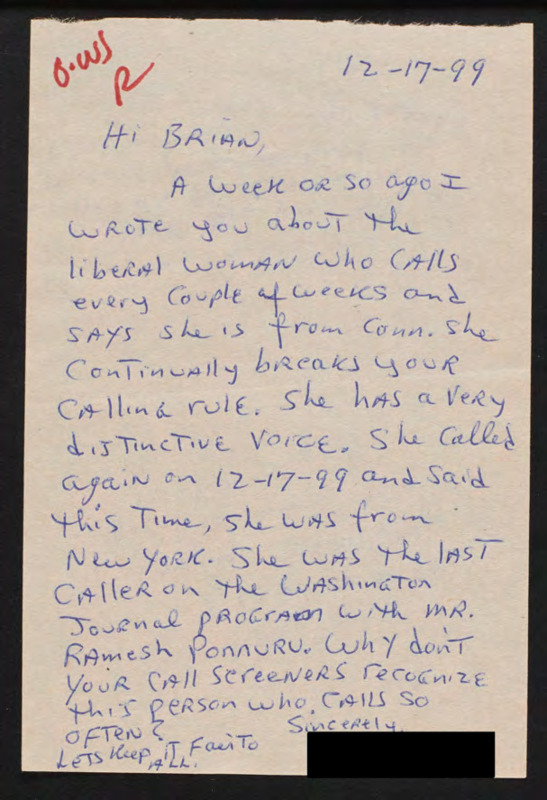 O-WJ
R
12-17-99
Hi BRiAN,
A week OR so ago I
wROTE you abouT the
liberal woman who CAlls
every Couple of weeks and
SAYS she is from Conn. She
ConTinually breaks your
CAlling rule. She hAS a very
disTincTive Voice. She Called
again on 12-17-99 and Said
this Time, she was from
New YORK. She was the lAST
CAller on the WAShinGTon
Journal PROGRAm with mR.
RAmesh PonnuRu. Why don'T
YOUR CAll ScreeneRS recognize
this person who CAllS So
OFTEN? Sincerely,
LeTS Keep iT Fair To
All.